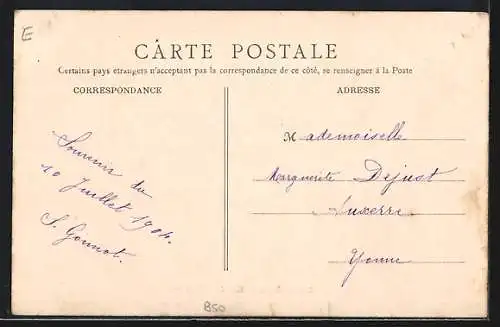 E
CARTE POSTALE
Certains pays etrangers n'acceptant pas la correspondance de ce côté, se renseigner à la Poste
CORRESPONDANCE
Souvenir du
10 Juillet 1904.
S. Gonnot.
ADRESSE
Mademoiselle
Marguerite Dejust
Auxerre
Yonne
B50